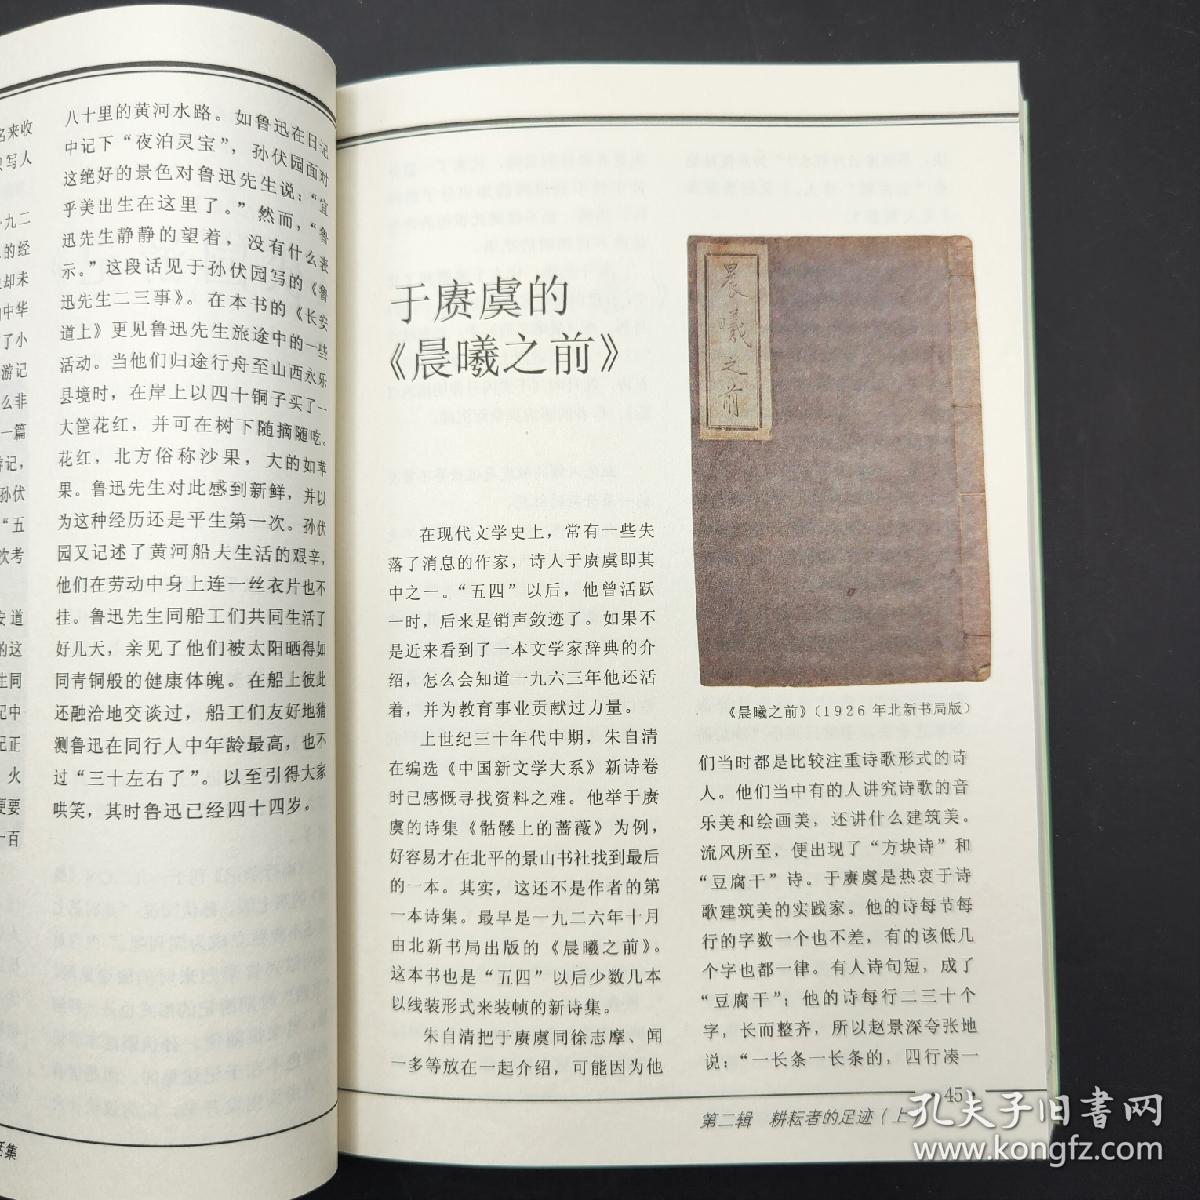 名来收
写人
一九二
的经
却未
中华
了小
游记
么非
一篇
游记，
孙伏
“五
饮考
安道
的这
生同
记中
记正
火
要要
十百
八十里的黄河水路。如鲁迅在日记
中记下“夜泊灵宝”，孙伏园面对
这绝好的景色对鲁迅先生说：“宜
乎美出生在这里了。”然而，“鲁
迅先生静静的望着，没有什么表
示。”这段话见于孙伏园写的《鲁
迅先生二三事》。在本书的《长安
道上》更见鲁迅先生旅途中的一些
活动。当他们归途行舟至山西永乐
县境时，在岸上以四十铜子买了一
大筐花红，并可在树下随摘随吃。
花红，北方俗称沙果，大的如苹
果。鲁迅先生对此感到新鲜，并以
为这种经历还是平生第一次。孙伏
园又记述了黄河船夫生活的艰辛，
他们在劳动中身上连一丝衣片也不
挂。鲁迅先生同船工们共同生活了
好几天，亲见了他们被太阳晒得如
同青铜般的健康体魄。在船上彼此
还融洽地交谈过，船工们友好地猜
测鲁迅在同行人中年龄最高，也不
过“三十左右了”。以至引得大家
哄笑，其时鲁迅已经四十四岁。
于赓虞的
《晨曦之前》
在现代文学史上，常有一些失
落了消息的作家，诗人于赓虞即其
中之一。“五四”以后，他曾活跃
一时，后来是销声敛迹了。如果不
是近来看到了一本文学家辞典的介
绍，怎么会知道一九六三年他还活
着，并为教育事业贡献过力量。
上世纪三十年代中期，朱自清
在编选《中国新文学大系》新诗卷
时已感慨寻找资料之难。他举于赓
虞的诗集《骷髅上的蔷薇》为例，
好容易才在北平的景山书社找到最后
的一本。其实，这还不是作者的第
一本诗集。最早是一九二六年十月
由北新书局出版的《晨曦之前》。
这本书也是“五四”以后少数几本
以线装形式来装帧的新诗集。
朱自清把于赓虞同徐志摩、闻
一多等放在一起介绍，可能因为他
晨曦之前
《晨曦之前》（1926年北新书局版）
们当时都是比较注重诗歌形式的诗
人。他们当中有的人讲究诗歌的音
乐美和绘画美，还讲什么建筑美。
流风所至，便出现了“方块诗”和
“豆腐干”诗。于赓虞是热衷于诗
歌建筑美的实践家。他的诗每节每
行的字数一个也不差，有的该低几
个字也都一律。有人诗句短，成了
“豆腐干”；他的诗每行二三十个
字，长而整齐，所以赵景深夸张地
说：“一长条一长条的，四行凑一
45
第二辑 耕耘者的足迹（上
孔夫子旧书网
www.kongfz.com